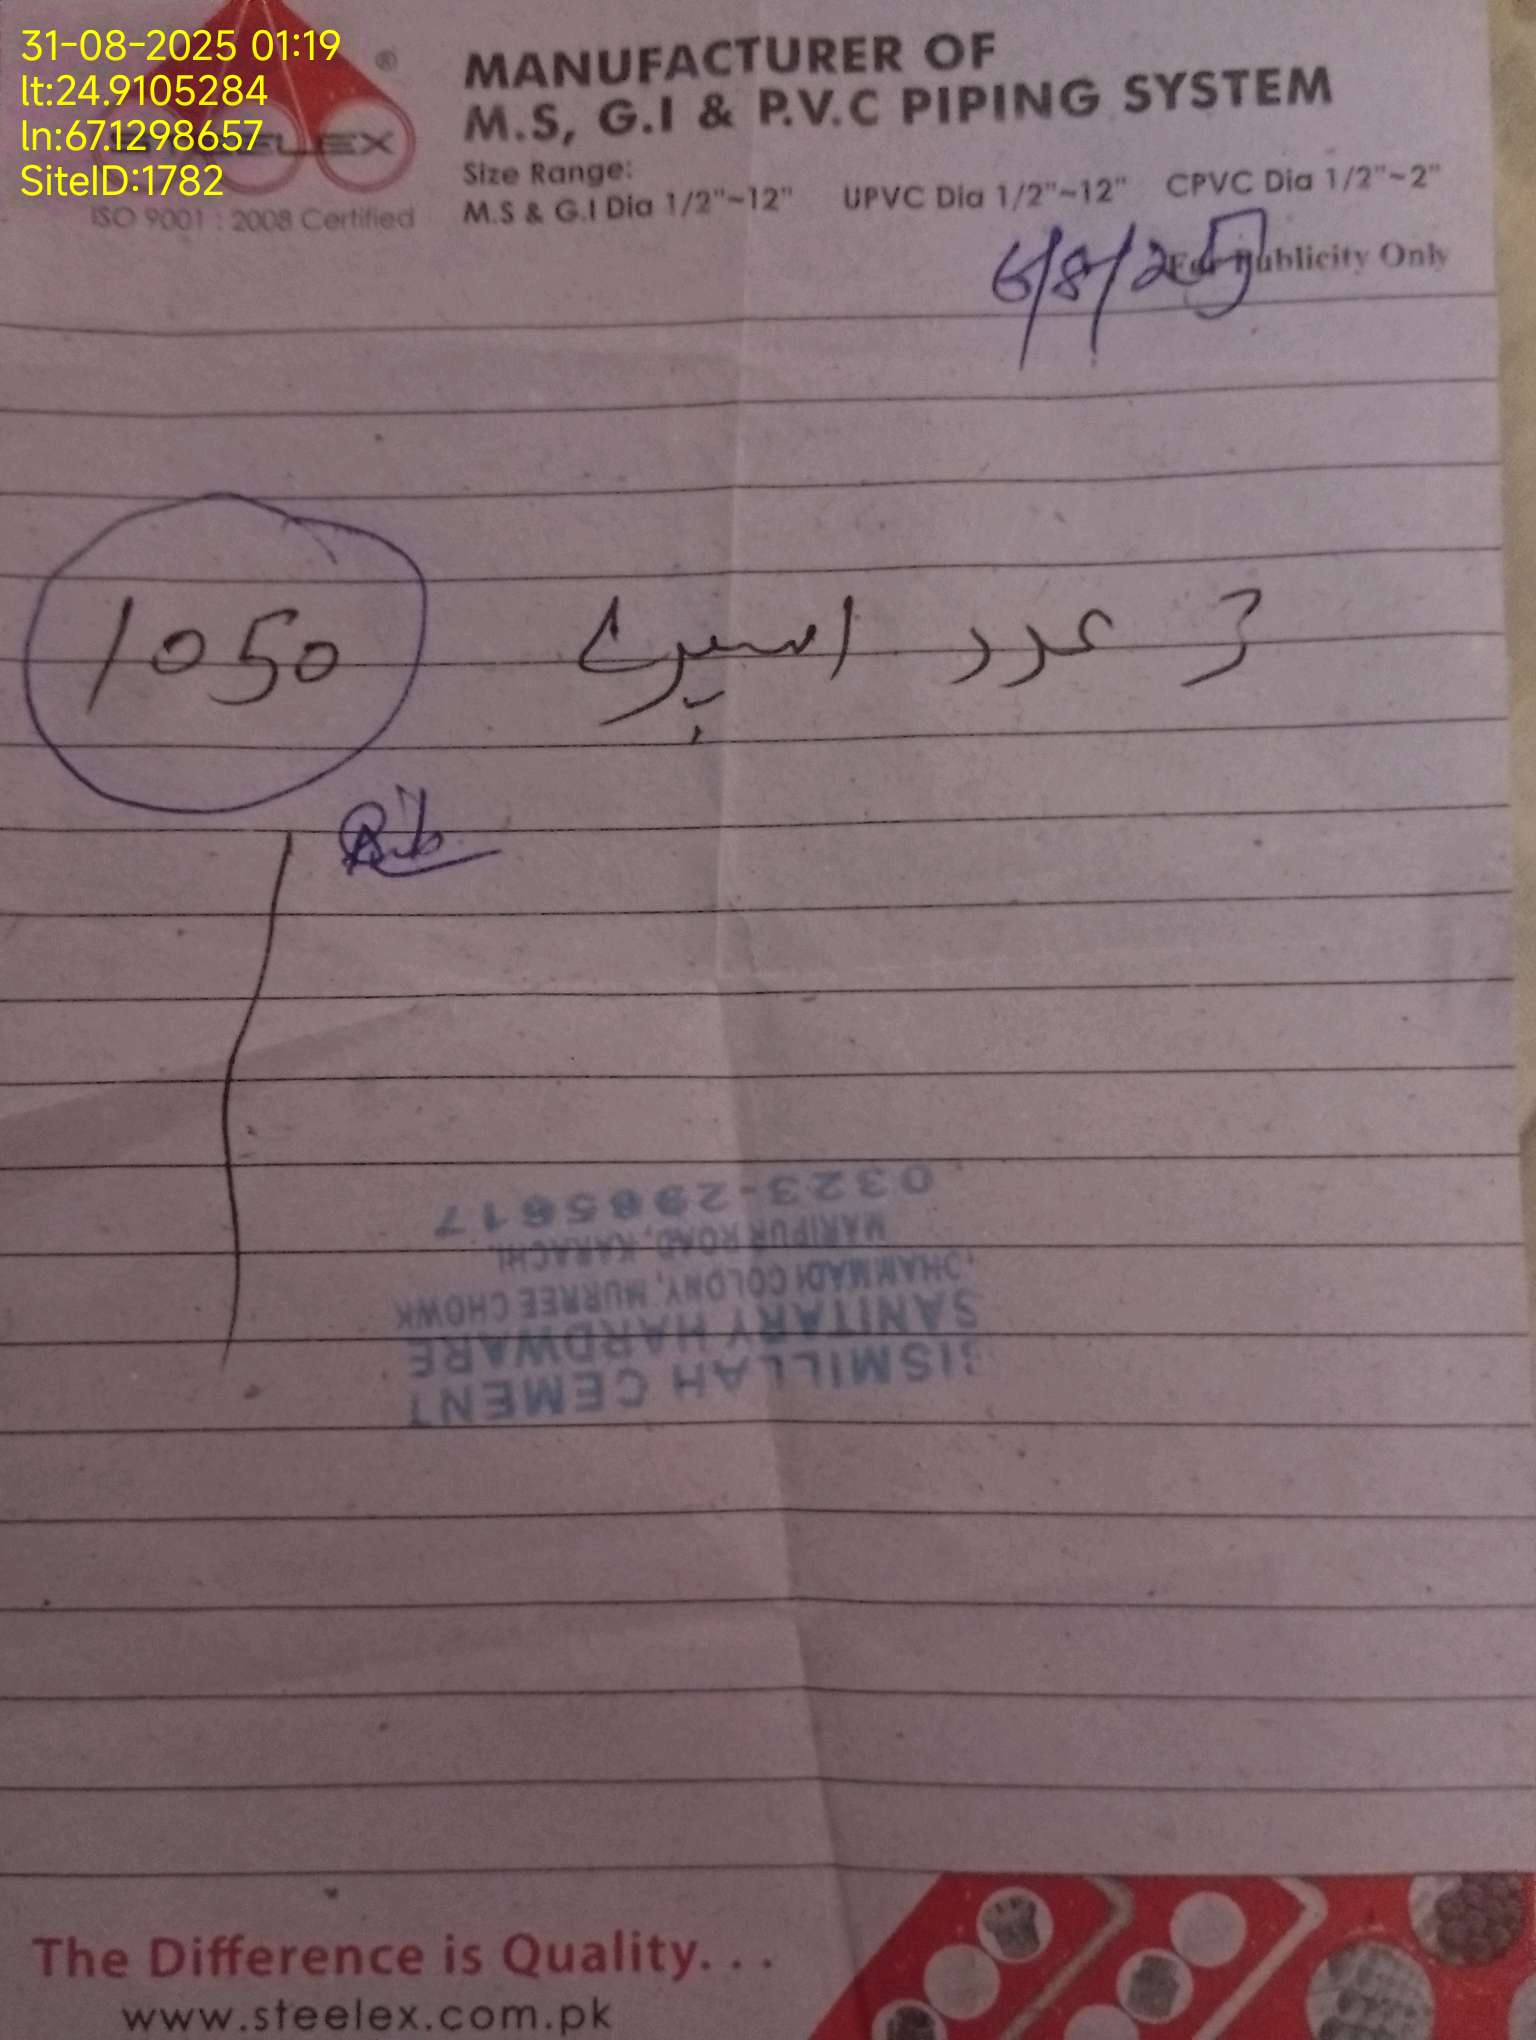 31-08-2025 01:19
lt:24.9105284
ln:67.1298657
SiteID:1782
STEELEX
®
ISO 9001 : 2008 Certified
MANUFACTURER OF
M.S, G.I & P.V.C PIPING SYSTEM
Size Range:
M.S & G.I Dia 1/2"~12" UPVC Dia 1/2"~12" CPVC Dia 1/2"~2"
For Publicity Only
6/8/25
3 عدد اسپرے 1050
BISMILLAH CEMENT
SANITARY HARDWARE
COLONY, MURREE CHOWK
MARIPUR ROAD, KARACHI.
0323-2985617
The Difference is Quality. . .
www.steelex.com.pk